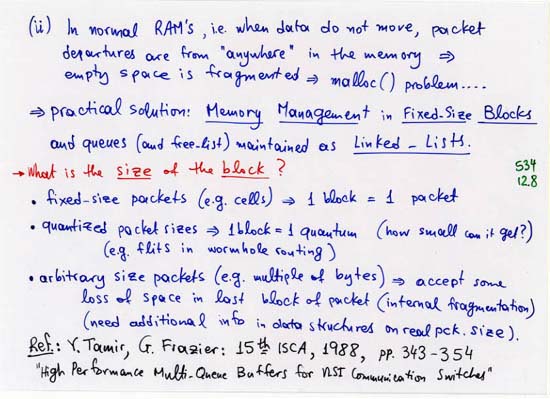 (ii) In normal RAM's, i.e. when data do not move, packet
departures are from "anywhere" in the memory ⇒
empty space is fragmented ⇒ malloc() problem....
⇒ practical solution: Memory Management in Fixed-Size Blocks
and queues (and free-list) maintained as Linked-Lists.
→ What is the size of the block?
534
12.8
• fixed-size packets (e.g. cells) ⇒ 1 block = 1 packet
• quantized packet sizes ⇒ 1 block = 1 quantum (how small can it get?)
(e.g. flits in wormhole routing)
• arbitrary size packets (e.g. multiple of bytes) ⇒ accept some
loss of space in last block of packet (internal fragmentation)
(need additional info in data structures on real pck. size).
Ref.: Y. Tamir, G. Frazier: 15th ISCA, 1988, pp. 343-354
"High Performance Multi-Queue Buffers for VLSI Communication Switches"